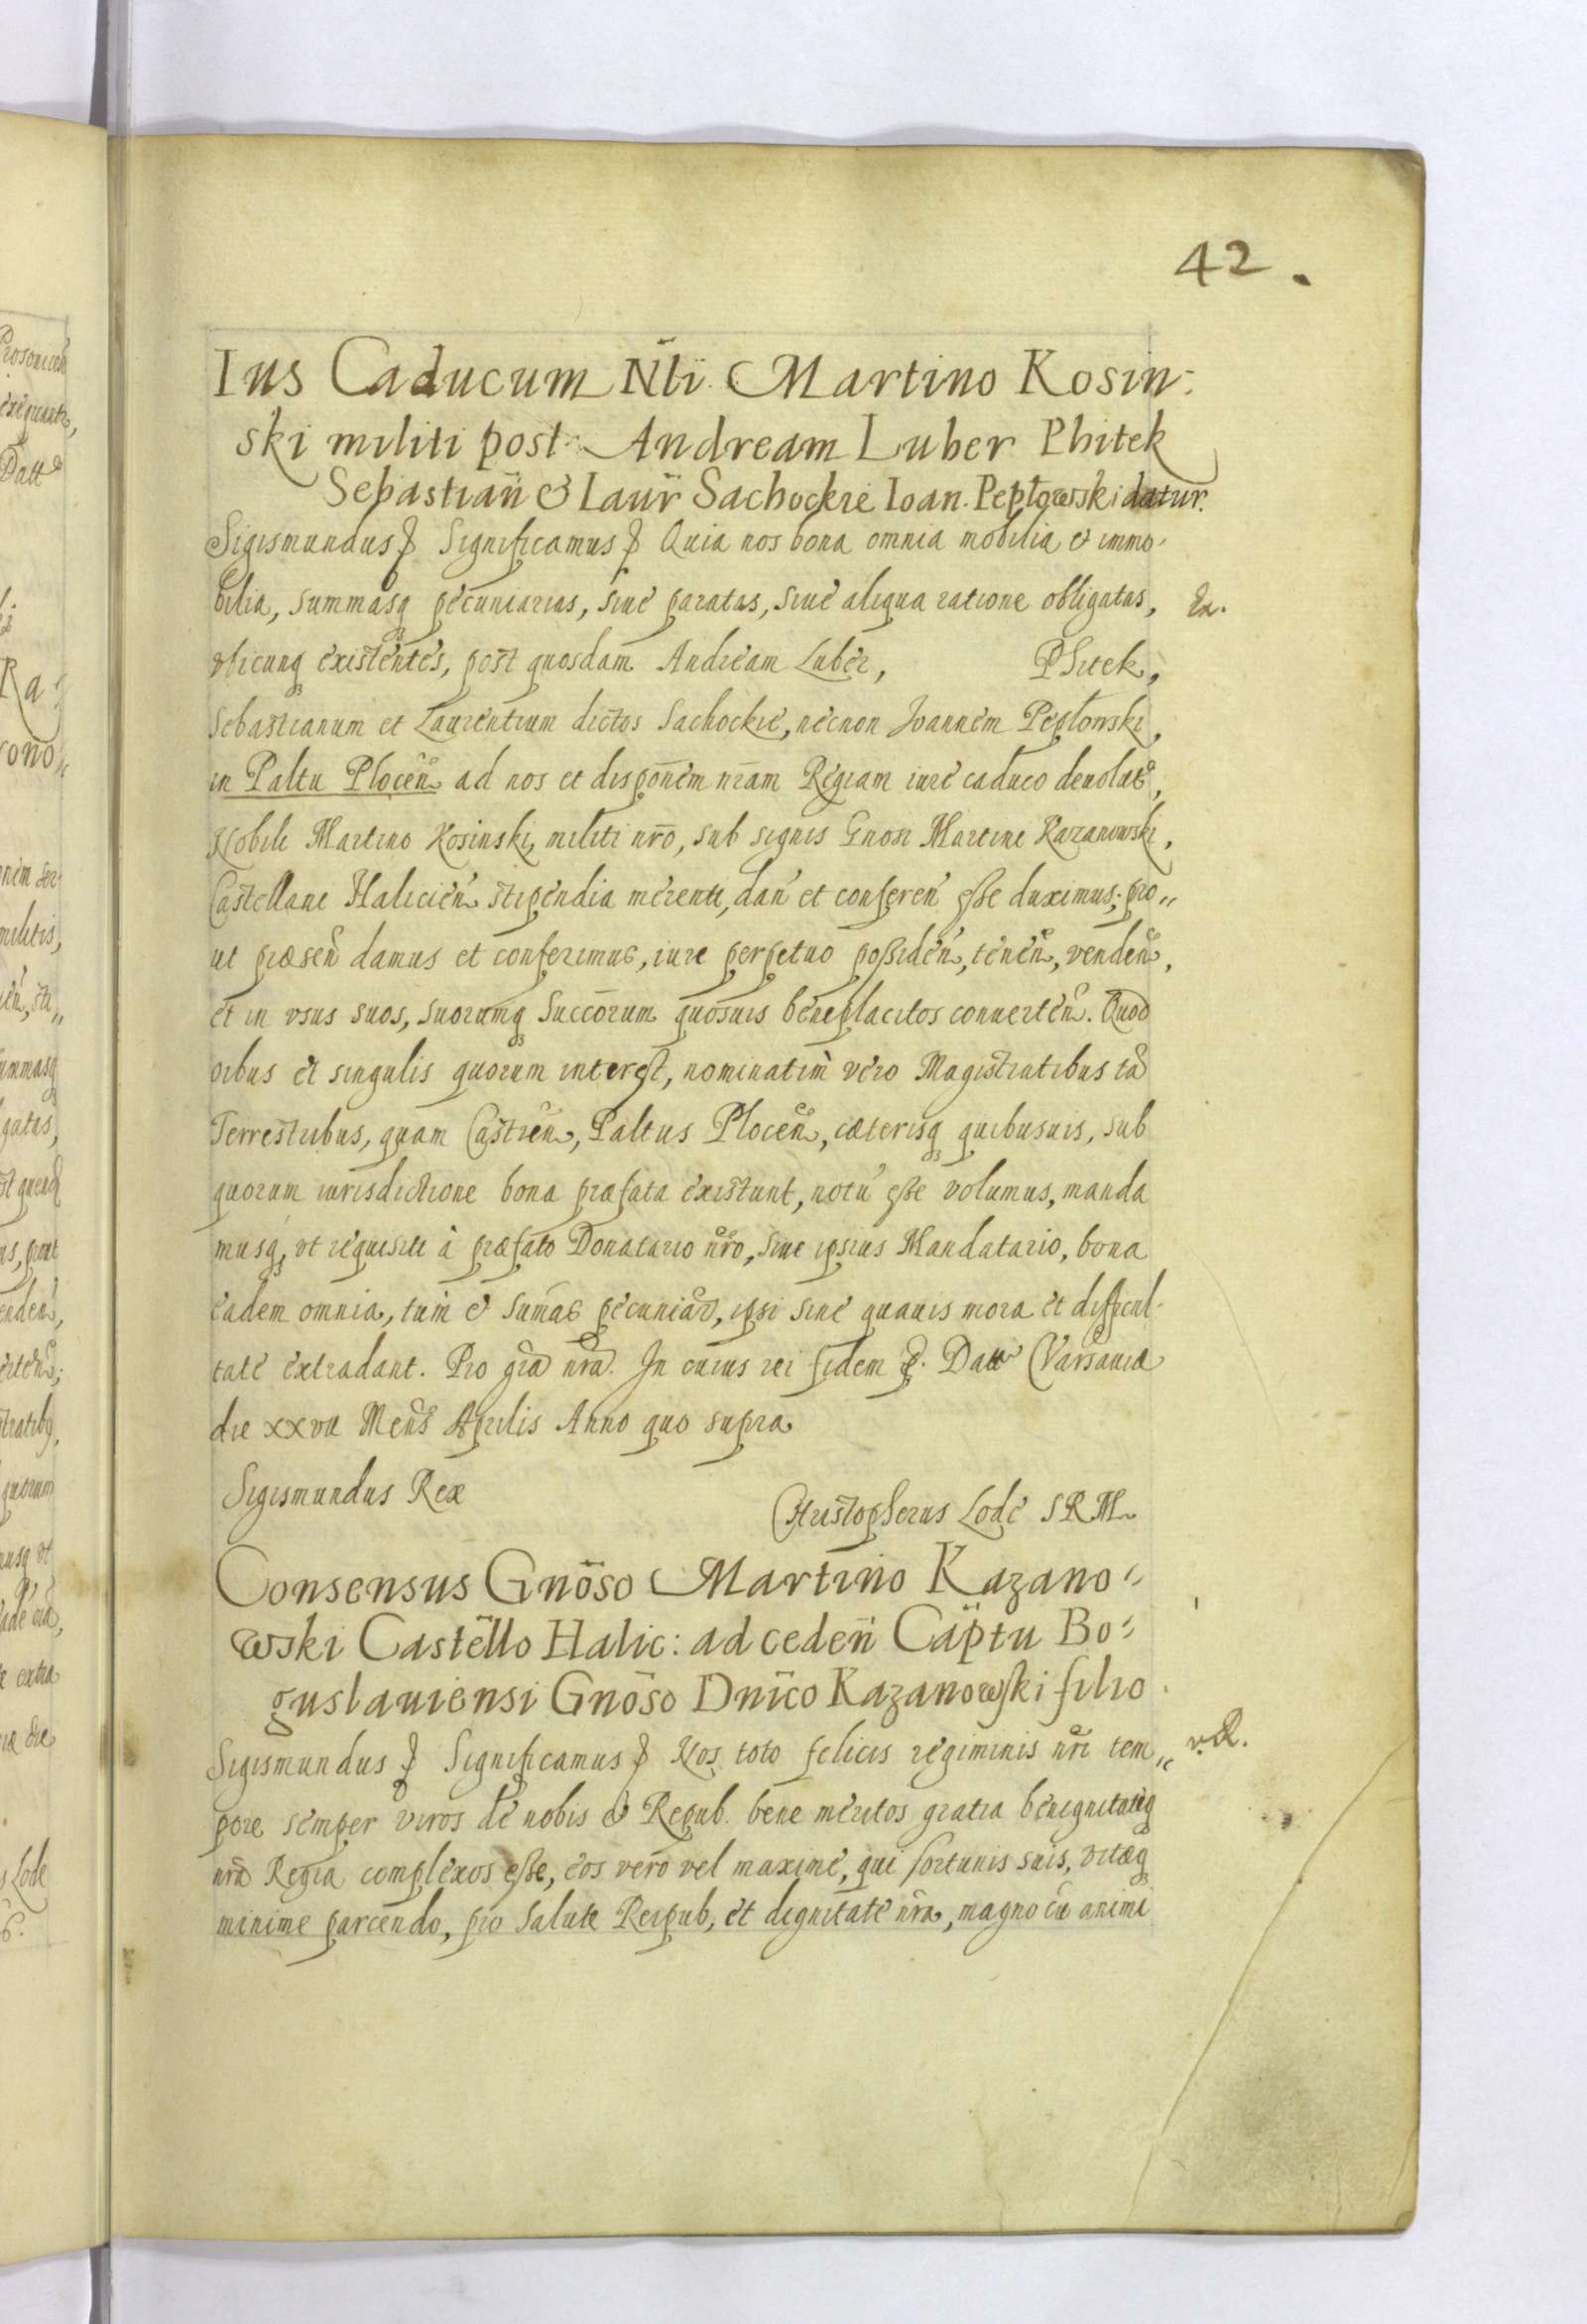 42.
Ius Caducum Nli Martino Kosin:
ski militi post Andream Luber Phitek
Sebastian̄ & Laur̄ Sachockie Ioan. Peplowski datur.
Sigismundus Significamus Quia nos bona omnia mobilia et immo-
bilia, summasq pecuniarias, siue paratas, siue aliqua ratione obligatas,
vbicunq existentes, post quosdam Andream Luber, Phitek,
Sebastianum et Laurentium dictos Sachockie, necnon Joannem Peplowski,
in Paltu Plocen̄ ad nos et dispōnem nr̄am Regiam iure caduco deuolut,
Nobili Martino Kosinski, militi nr̄o, sub signis Gnosi Martini Kazanowski,
Castellani Halicien̄ stipendia merenti, dan̄ et conferen̄ esse duximus; pro„
ut præsen̄ damus et conferimus, iure perpetuo possiden̄, tenen̄, venden̄,
et in vsus suos, suorumq Succōrum quosuis beneplacitos conuerten̄. Quod
oibus et singulis quorum interest, nominatim vero Magistratibus ta
Terrestribus, quam Castren̄, Paltus Plocen̄, cæterisq quibusuis, sub
quorum iurisdictione bona præfata existunt, notū esse volumus, manda
musq, vt requisiti à præfato Donatario nr̄o, siue ipsius Mandatario, bona
eadem omnia, tum et sum̄as pecuniar, ipsi sine quauis mora et difficul-
tate extradant. Pro gr̄a nr̄a. In cuius rei fidem &. Datt Varsauiæ
die xxvii Mens̄ Aprilis Anno quo supra
Sigismundus Rex
Christopherus Lode SRM
Consensus Gnōso Martino Kazano„
wski Castello Halic: ad ceden̄ Cāptu Bo:
guslauiensi Gnōso Dn̄ico Kazanowski filio.
Sigismundus Significamus Nos toto felicis regiminis nr̄i tem„
pore semper viros de nobis et Repub. bene meritos gratia benignitateq
nr̄a Regia complexos esse, eos vero vel maxime, qui fortunis suis, vitæq
minime parcendo, pro salute Reipub, et dignitate nr̄a, magno cū animi